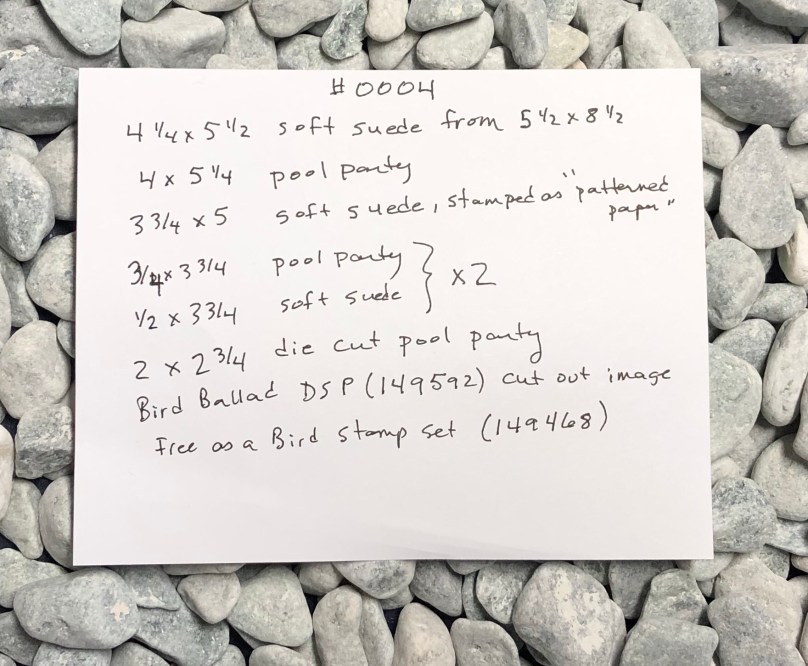 #0004
4 1/4 x 5 1/2 soft suede from 5 1/2 x 8 1/2
4 x 5 1/4 pool party
3 3/4 x 5 soft suede, stamped as "patterned
paper"
3/4 x 3 3/4 pool party
1/2 x 3 3/4 soft suede } x2
2 x 2 3/4 die cut pool party
Bird Ballad DSP (149592) cut out image
Free as a Bird stamp set (149468)